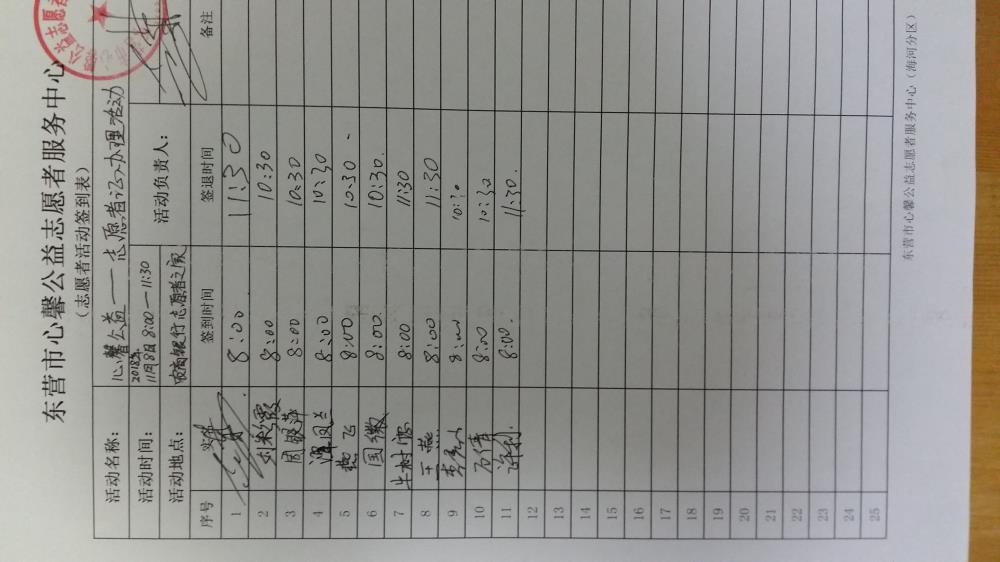 东营市心馨公益志愿者服务中心
（志愿者活动签到表）
活动名称： 心馨公益——志愿者证办理活动
活动时间： 2018年11月8日 8:00—11:30 活动负责人：
活动地点： 农商银行志愿者之家
序号 签到时间 签退时间 备注
1 8:00 11:30
2 刘彩霞 8:00 10:30
3 周银萍 8:00 10:30
4 谭凤兰 8:00 10:30
5 8:00 10:30
6 国徽 8:00 10:30
7 牛树 8:00 11:30
8 王燕 8:00 11:30
9 8:00 10:30
10 石伟 8:00 10:30
11 许利 8:00 11:30
12
13
14
15
16
17
18
19
20
21
22
23
24
25
东营市心馨公益志愿者服务中心（海河分区）